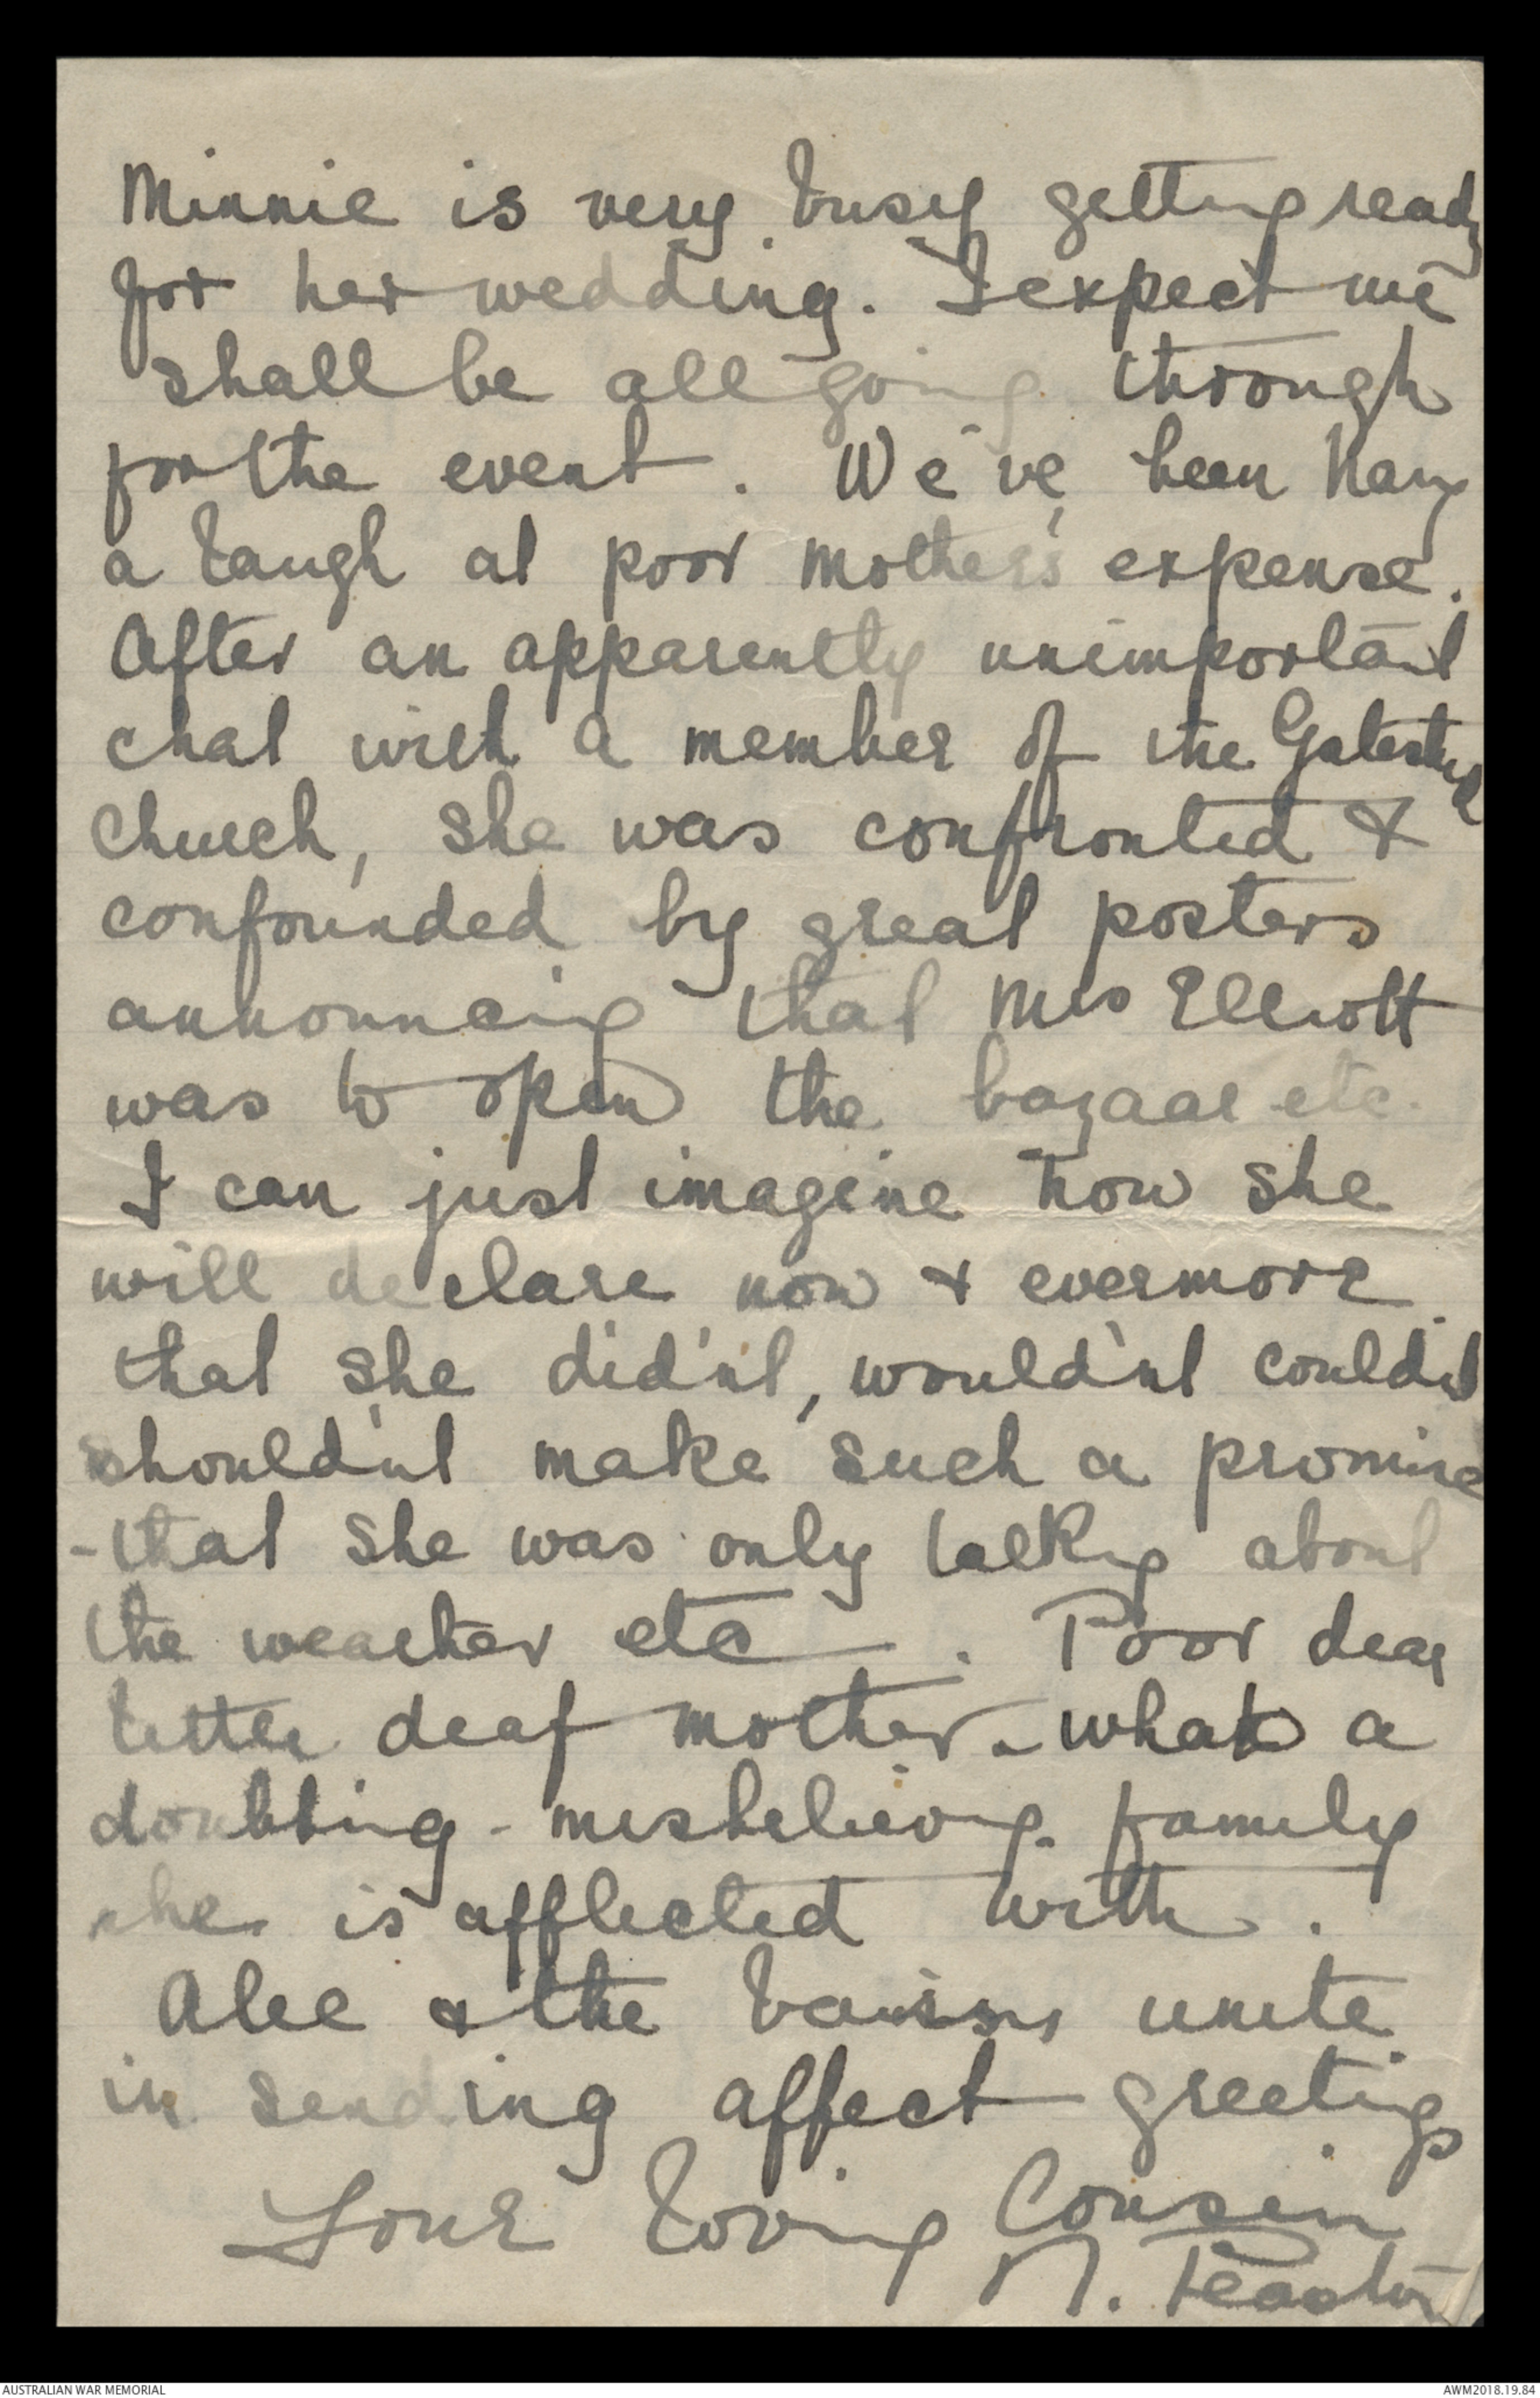 Minnie is very busy getting ready
for her wedding. I expect we
shall be all going through
for the event. We've been havg
a laugh at poor mother's expense.
After an apparently unimportant
chat with a member of the
church, she was confronted &
confounded by great posters
announcing that Mrs Elliott
was to open the bazaar etc.
I can just imagine how she
will declare now & evermore
that she did'nt, would'nt could'nt
should'nt make such a promise
- that she was only talkg about
the weather etc. Poor dear
little deaf mother - what a
doubting - misbelievg family
she is afflicted with.
Alec & the unite
in sending affect greetings
Your loving Cousin
N.
AUSTRALIAN WAR MEMORIAL
AWM2018.19.84